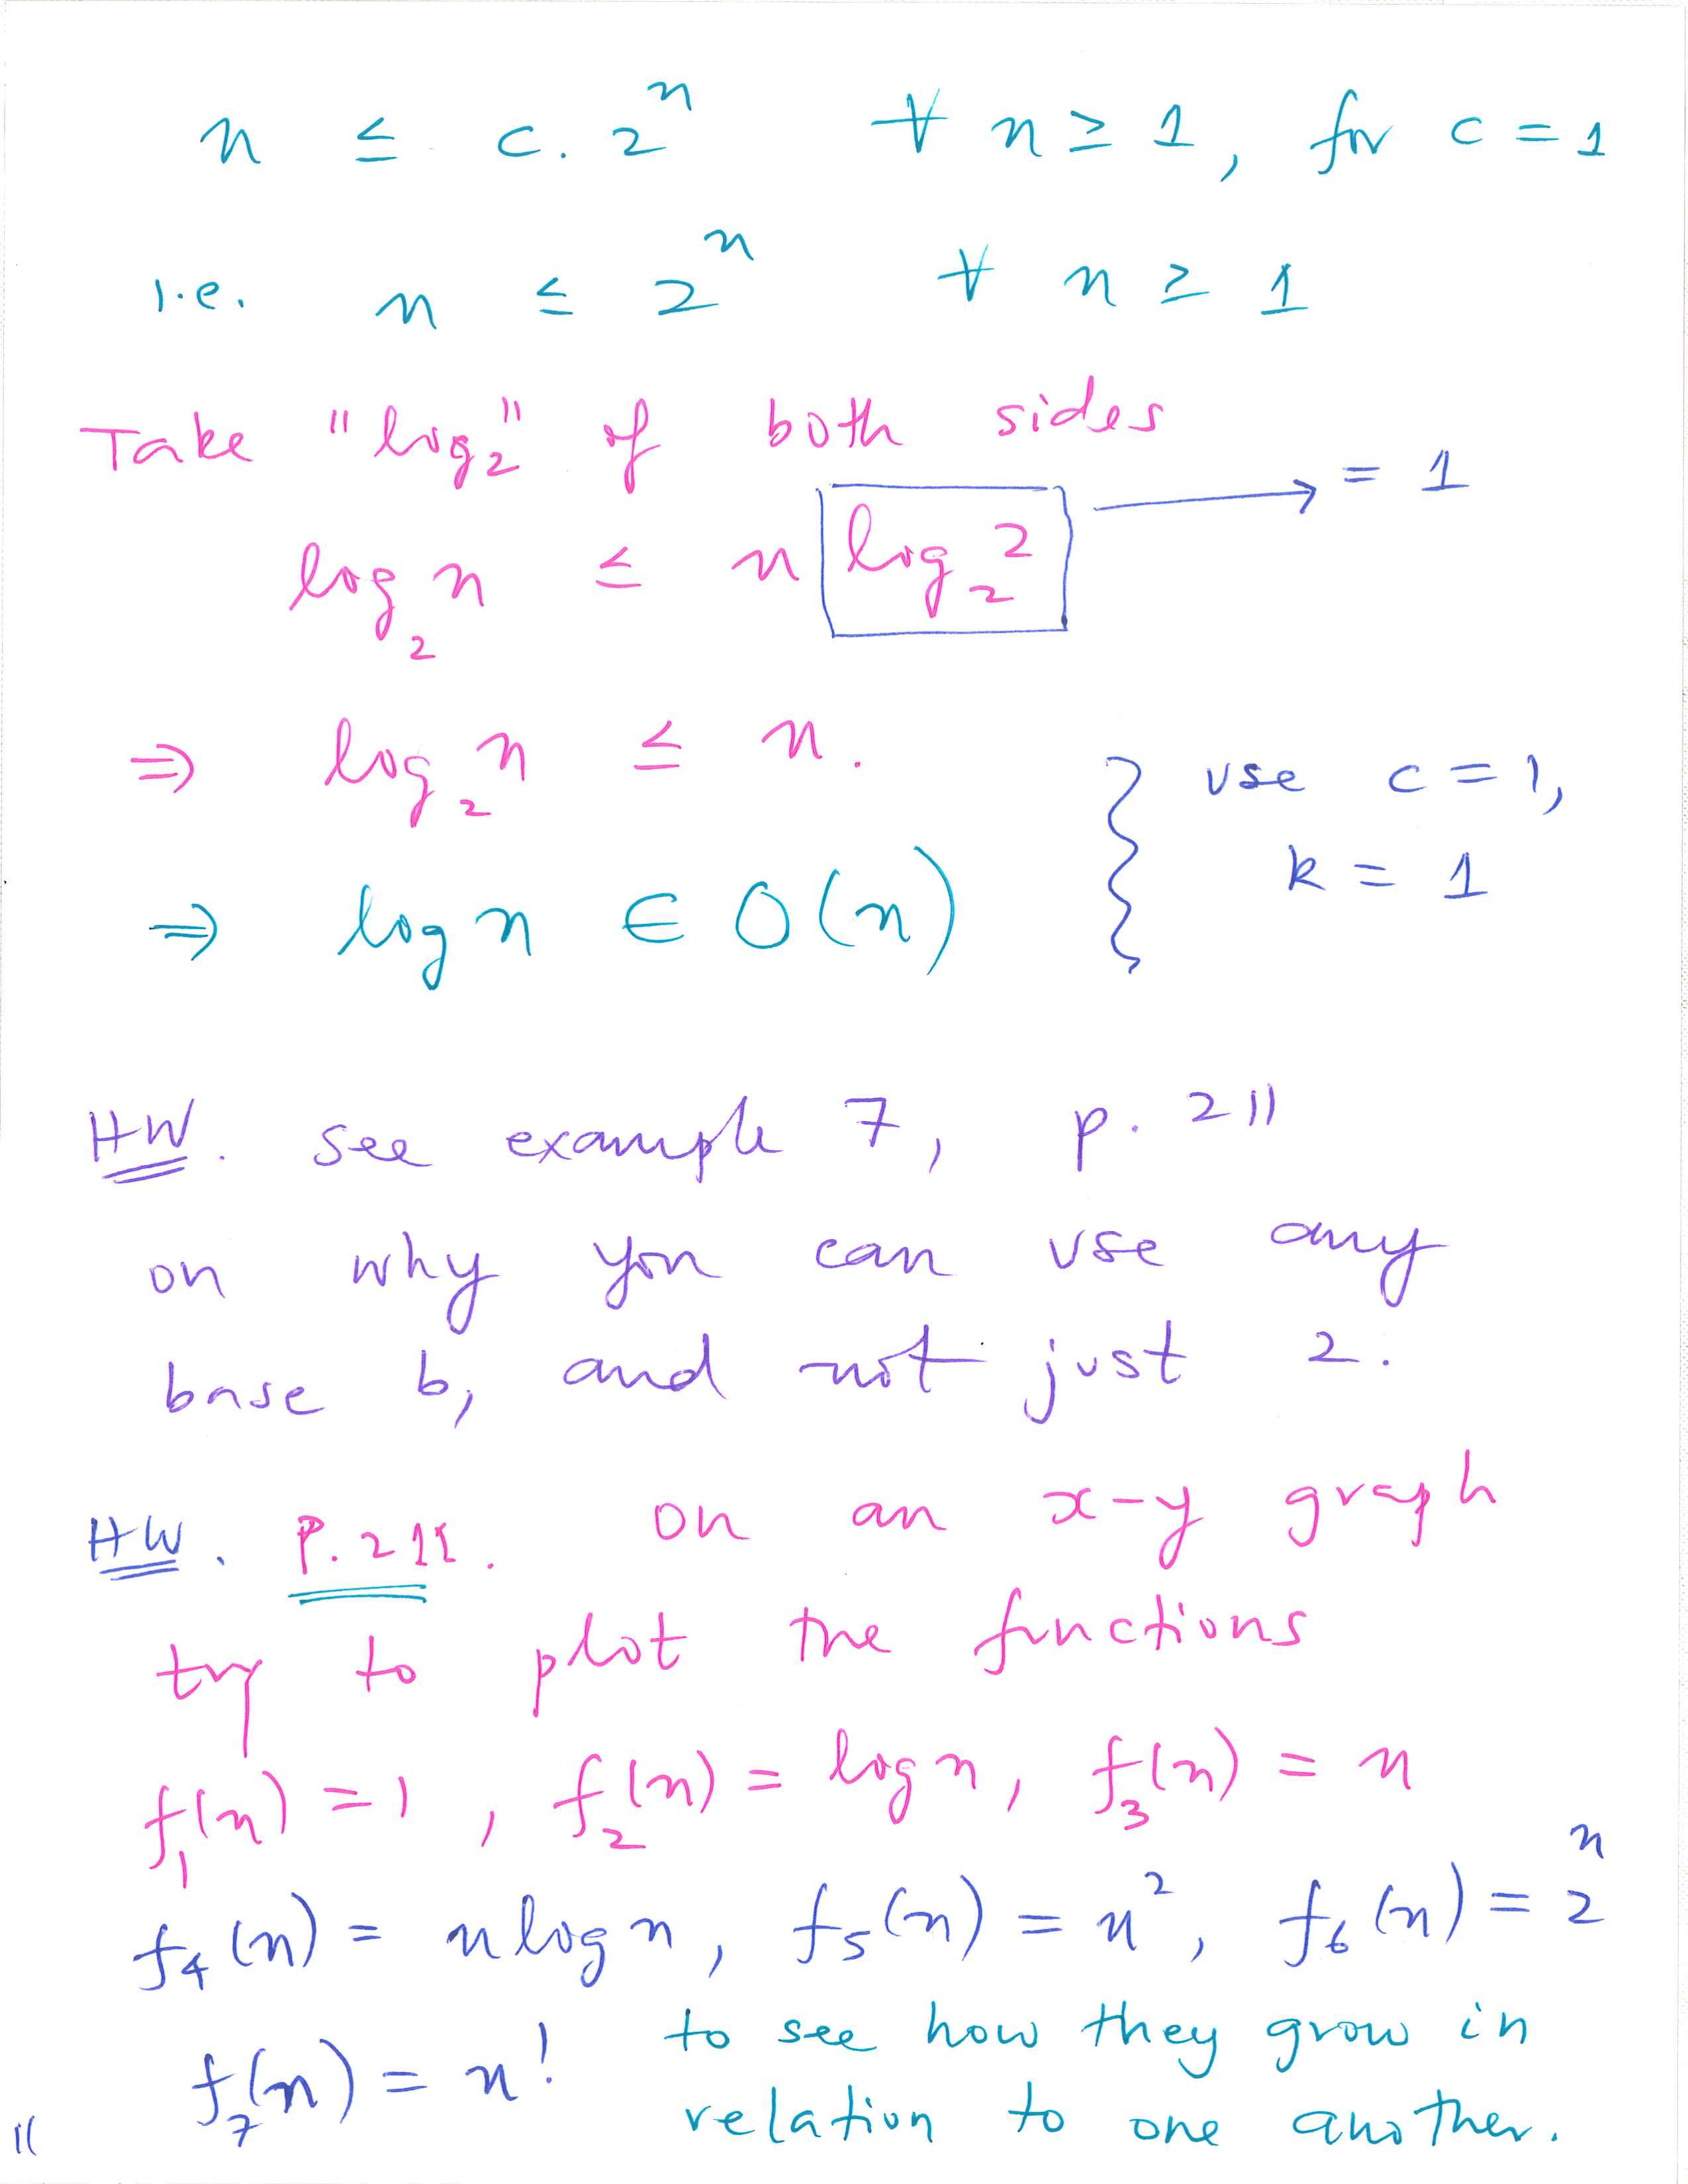 n ≤ c. 2ⁿ ∀ n ≥ 1, for c = 1
i.e. n ≤ 2ⁿ ∀ n ≥ 1
Take "log₂" of both sides
= 1
log₂ n ≤ n log₂ 2
⇒ log₂ n ≤ n.
use c = 1,
k = 1
⇒ log n ∈ O(n)
HW. see example 7, p. 211
on why you can use any
base b, and not just 2.
HW. P. 211. on an x-y graph
try to plot the functions
f₁(n) = 1, f₂(n) = log n, f₃(n) = n
f₄(n) = n log n, f₅(n) = n², f₆(n) = 2ⁿ
f₇(n) = n! to see how they grow in
relation to one another.
11